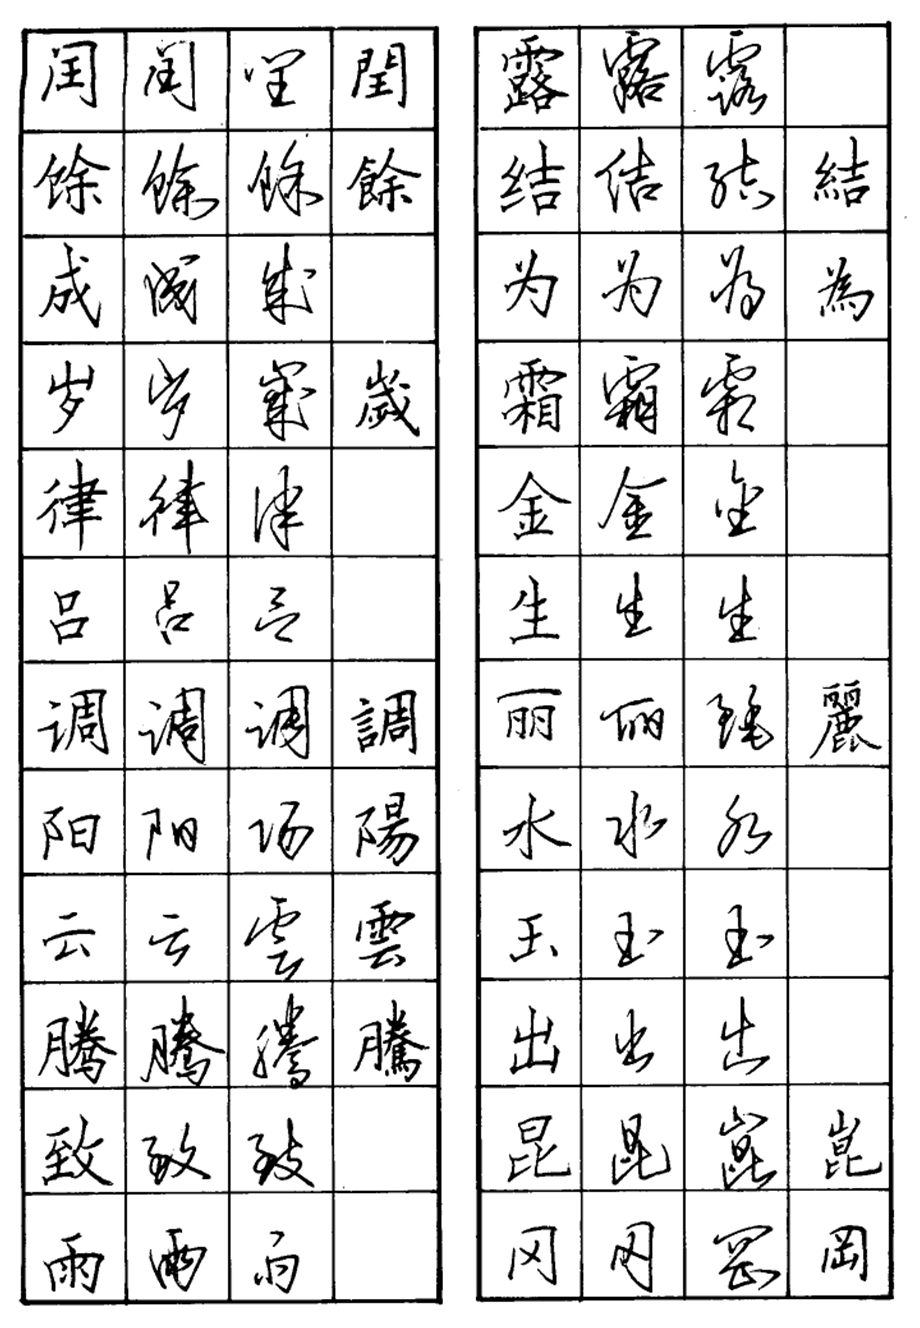 闰 闰 閏 閏
馀 馀 馀 餘
成 成 成
岁 岁 歲 歲
律 律 律
吕 吕 吕
调 调 调 調
阳 阳 陽 陽
云 云 雲 雲
腾 腾 騰 騰
致 致 致
雨 雨 雨
露 露 露
结 结 結 結
为 为 為 為
霜 霜 霜
金 金 金
生 生 生
丽 丽 麗 麗
水 水 水
玉 玉 玉
出 出 出
昆 昆 崑 崑
冈 冈 岡 岡